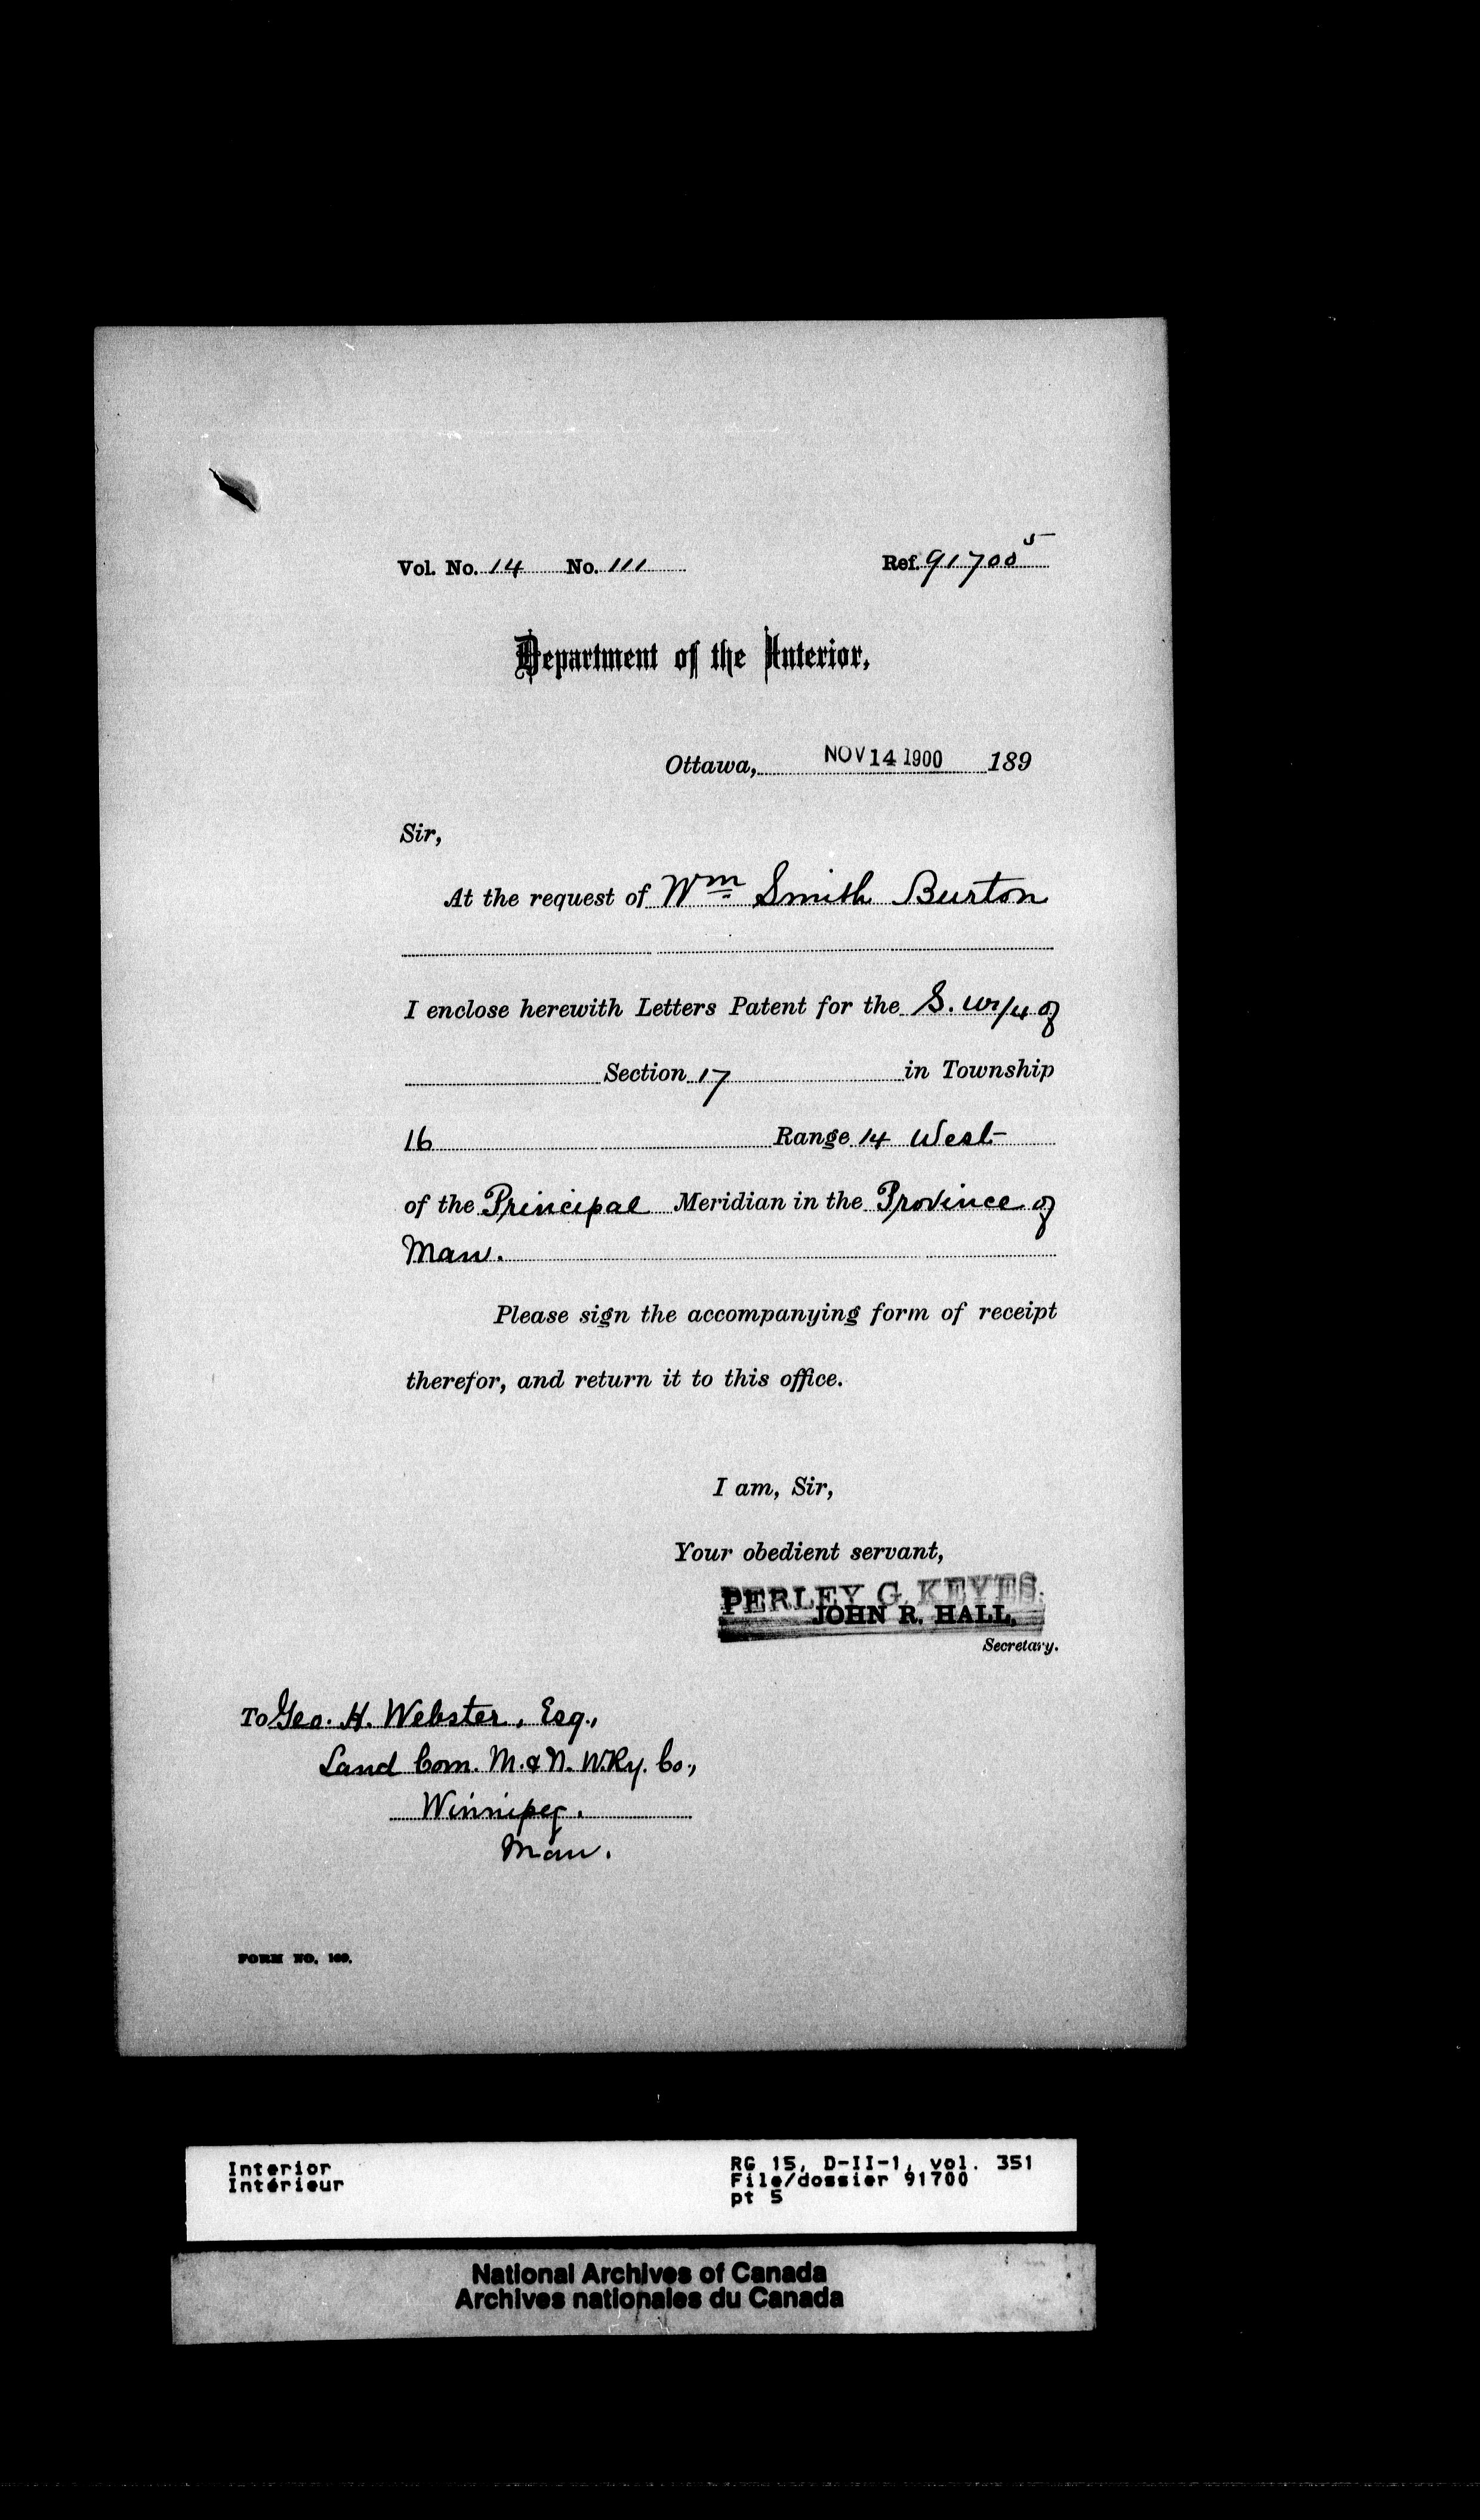 Vol. No. 14 No. 111 Ref. 91700⁵
Department of the Interior,
Ottawa, NOV 14 1900 189
Sir,
At the request of Wm Smith Burton
I enclose herewith Letters Patent for the S. W 1/4 of
Section 17 in Township
16 Range 14 West
of the Principal Meridian in the Province of
Man.
Please sign the accompanying form of receipt
therefor, and return it to this office.
I am, Sir,
Your obedient servant,
PERLEY G. KEYES.
JOHN R. HALL,
Secretary.
To Geo. H. Webster, Esq.,
Land Com. M. & N. W. Ry. Co.,
Winnipeg.
Man.
FORM NO. 169.
Interior
Intérieur
RG 15, D-II-1, vol. 351
File/dossier 91700
pt 5
National Archives of Canada
Archives nationales du Canada